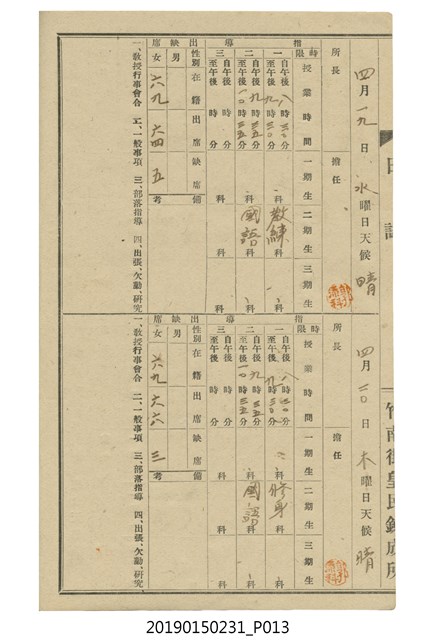 日誌
竹南街皇民錬成所
四月一九日 水曜日天候 晴
所長
擔任
指導
時限
授業時間
一期生
二期生
三期生
一
自午後八時三〇分
至午後九時三〇分
科
教練科
科
二
自午後九時三五分
至午後一〇時三五分
科
國語科
科
三
自午後 時 分
至午後 時 分
科
科
科
出缺席
性別
在籍
出席
缺席
備考
男
女 六九 六四 五
一、教授行事會合 二、一般事項 三、部落指導 四、出張、欠勤、研究
四月二〇日 木曜日天候 晴
所長
擔任
指導
時限
授業時間
一期生
二期生
三期生
一
自午後八時三〇分
至午後九時三〇分
科
修身科
科
二
自午後九時三五分
至午後一〇時三五分
科
國語科
科
三
自午後 時 分
至午後 時 分
科
科
科
出缺席
性別
在籍
出席
缺席
備考
男
女 六九 六六 三
一、教授行事會合 二、一般事項 三、部落指導 四、出張、欠勤、研究
20190150231_P013